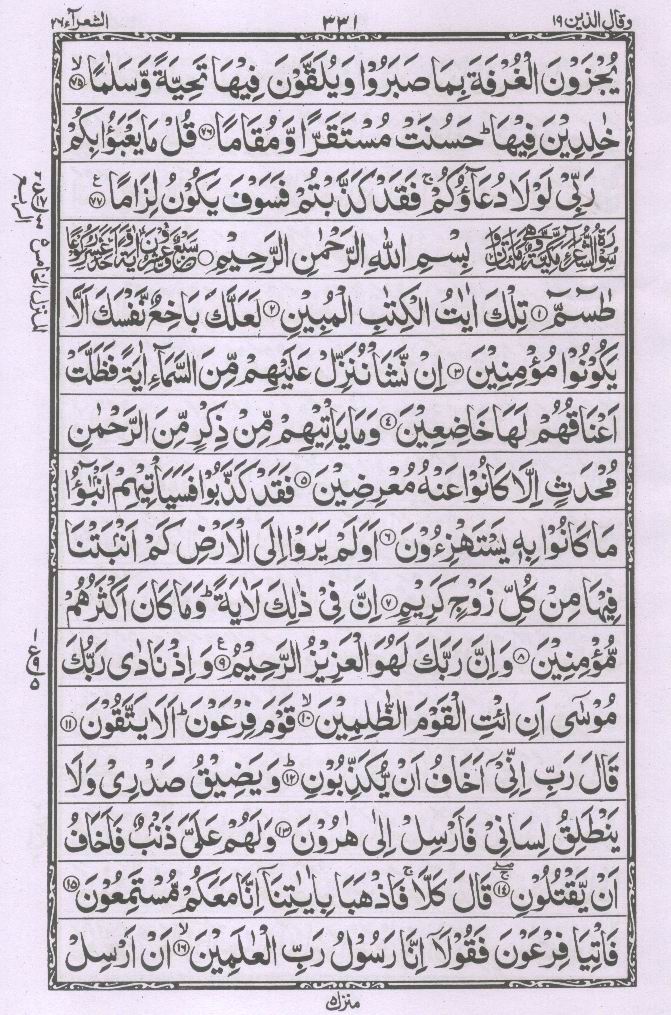 وقال الذين ١٩
٣٣١
الشعرآء ٢٦
يُجْزَوْنَ الْغُرْفَةَ بِمَا صَبَرُوْا وَيُلَقَّوْنَ فِيْهَا تَحِيَّةً وَّسَلٰمًا ۙ‏ ﴿٧٥﴾
خٰلِدِيْنَ فِيْهَا ؕ حَسُنَتْ مُسْتَقَرًّا وَّمُقَامًا ﴿٧٦﴾ قُلْ مَا يَعْبَؤُا بِكُمْ
رَبِّىْ لَوْلَا دُعَآؤُكُمْ ۚ فَقَدْ كَذَّبْتُمْ فَسَوْفَ يَكُوْنُ لِزَامًا ﴿٧٧﴾ ع
بِسْمِ اللهِ الرَّحْمٰنِ الرَّحِيْمِ
طٰسٓمّٓ ﴿١﴾ تِلْكَ اٰيٰتُ الْكِتٰبِ الْمُبِيْنِ ﴿٢﴾ لَعَلَّكَ بَاخِعٌ نَّفْسَكَ اَلَّا
يَكُوْنُوْا مُؤْمِنِيْنَ ﴿٣﴾ اِنْ نَّشَاْ نُنَزِّلْ عَلَيْهِمْ مِّنَ السَّمَآءِ اٰيَةً فَظَلَّتْ
اَعْنَاقُهُمْ لَهَا خَاضِعِيْنَ ﴿٤﴾ وَمَا يَاْتِيْهِمْ مِّنْ ذِكْرٍ مِّنَ الرَّحْمٰنِ
مُحْدَثٍ اِلَّا كَانُوْا عَنْهُ مُعْرِضِيْنَ ﴿٥﴾ فَقَدْ كَذَّبُوْا فَسَيَاْتِيْهِمْ اَنْۢبٰٓؤُا
مَا كَانُوْا بِهٖ يَسْتَهْزِءُوْنَ ﴿٦﴾ اَوَلَمْ يَرَوْا اِلَى الْاَرْضِ كَمْ اَنْۢبَتْنَا
فِيْهَا مِنْ كُلِّ زَوْجٍ كَرِيْمٍ ﴿٧﴾ اِنَّ فِىْ ذٰلِكَ لَاٰيَةً ؕ وَمَا كَانَ اَكْثَرُهُمْ
مُّؤْمِنِيْنَ ﴿٨﴾ وَاِنَّ رَبَّكَ لَهُوَ الْعَزِيْزُ الرَّحِيْمُ ﴿٩﴾ ع وَاِذْ نَادٰى رَبُّكَ
مُوْسٰٓى اَنِ ائْتِ الْقَوْمَ الظّٰلِمِيْنَ ۙ‏ ﴿١٠﴾ قَوْمَ فِرْعَوْنَ ؕ اَلَا يَتَّقُوْنَ ﴿١١﴾
قَالَ رَبِّ اِنِّىْۤ اَخَافُ اَنْ يُّكَذِّبُوْنِ ؕ ﴿١٢﴾ وَيَضِيْقُ صَدْرِىْ وَلَا
يَنْطَلِقُ لِسَانِىْ فَاَرْسِلْ اِلٰى هٰرُوْنَ ﴿١٣﴾ وَلَهُمْ عَلَىَّ ذَنْۢبٌ فَاَخَافُ
اَنْ يَّقْتُلُوْنِ ۚ ﴿١٤﴾ قَالَ كَلَّا ۚ فَاذْهَبَا بِاٰيٰتِنَآ اِنَّا مَعَكُمْ مُّسْتَمِعُوْنَ ﴿١٥﴾
فَاْتِيَا فِرْعَوْنَ فَقُوْلَآ اِنَّا رَسُوْلُ رَبِّ الْعٰلَمِيْنَ ۙ‏ ﴿١٦﴾ اَنْ اَرْسِلْ
منزل ٥